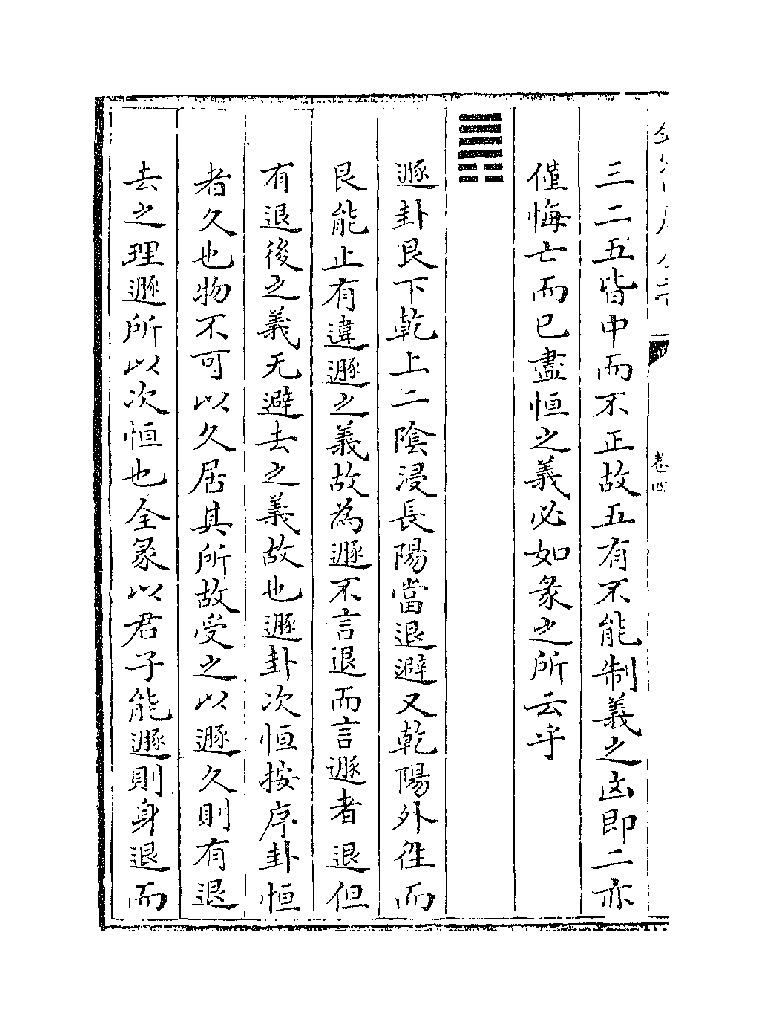 卷四
三二五皆中而不正故五有不能制義之凶即二亦
僅悔亡而已盡恒之義必如彖之所云乎
䷠
遯卦艮下乾上二隂浸長陽當退避又乾陽外徃而
艮能止有違遯之義故為遯不言退而言遯者退但
有退後之義无避去之義故也遯卦次恒按序卦恒
者久也物不可以久居其所故受之以遯久則有退
去之理遯所以次恒也全彖以君子能遯則身退而